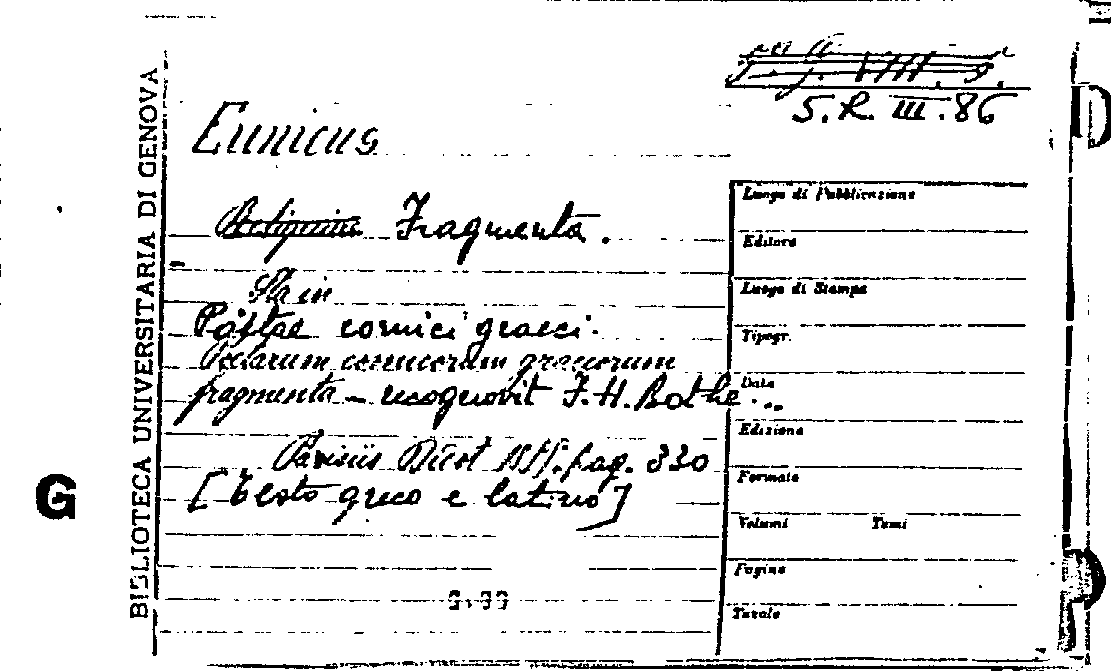 S.R. III.86
BIBLIOTECA UNIVERSITARIA DI GENOVA
Eunicus
Fragmenta.
Sta in
Poëtae comici graeci.
comicorum graecorum
fragmenta - recognovit F.H. Bothe..
Parisiis Didot pag. 330
[Testo greco e latino]
G
Luogo di Pubblicazione
Editore
Luogo di Stampa
Tipogr.
Data
Edizione
Formato
Volumi Tomi
Pagine
Tavole